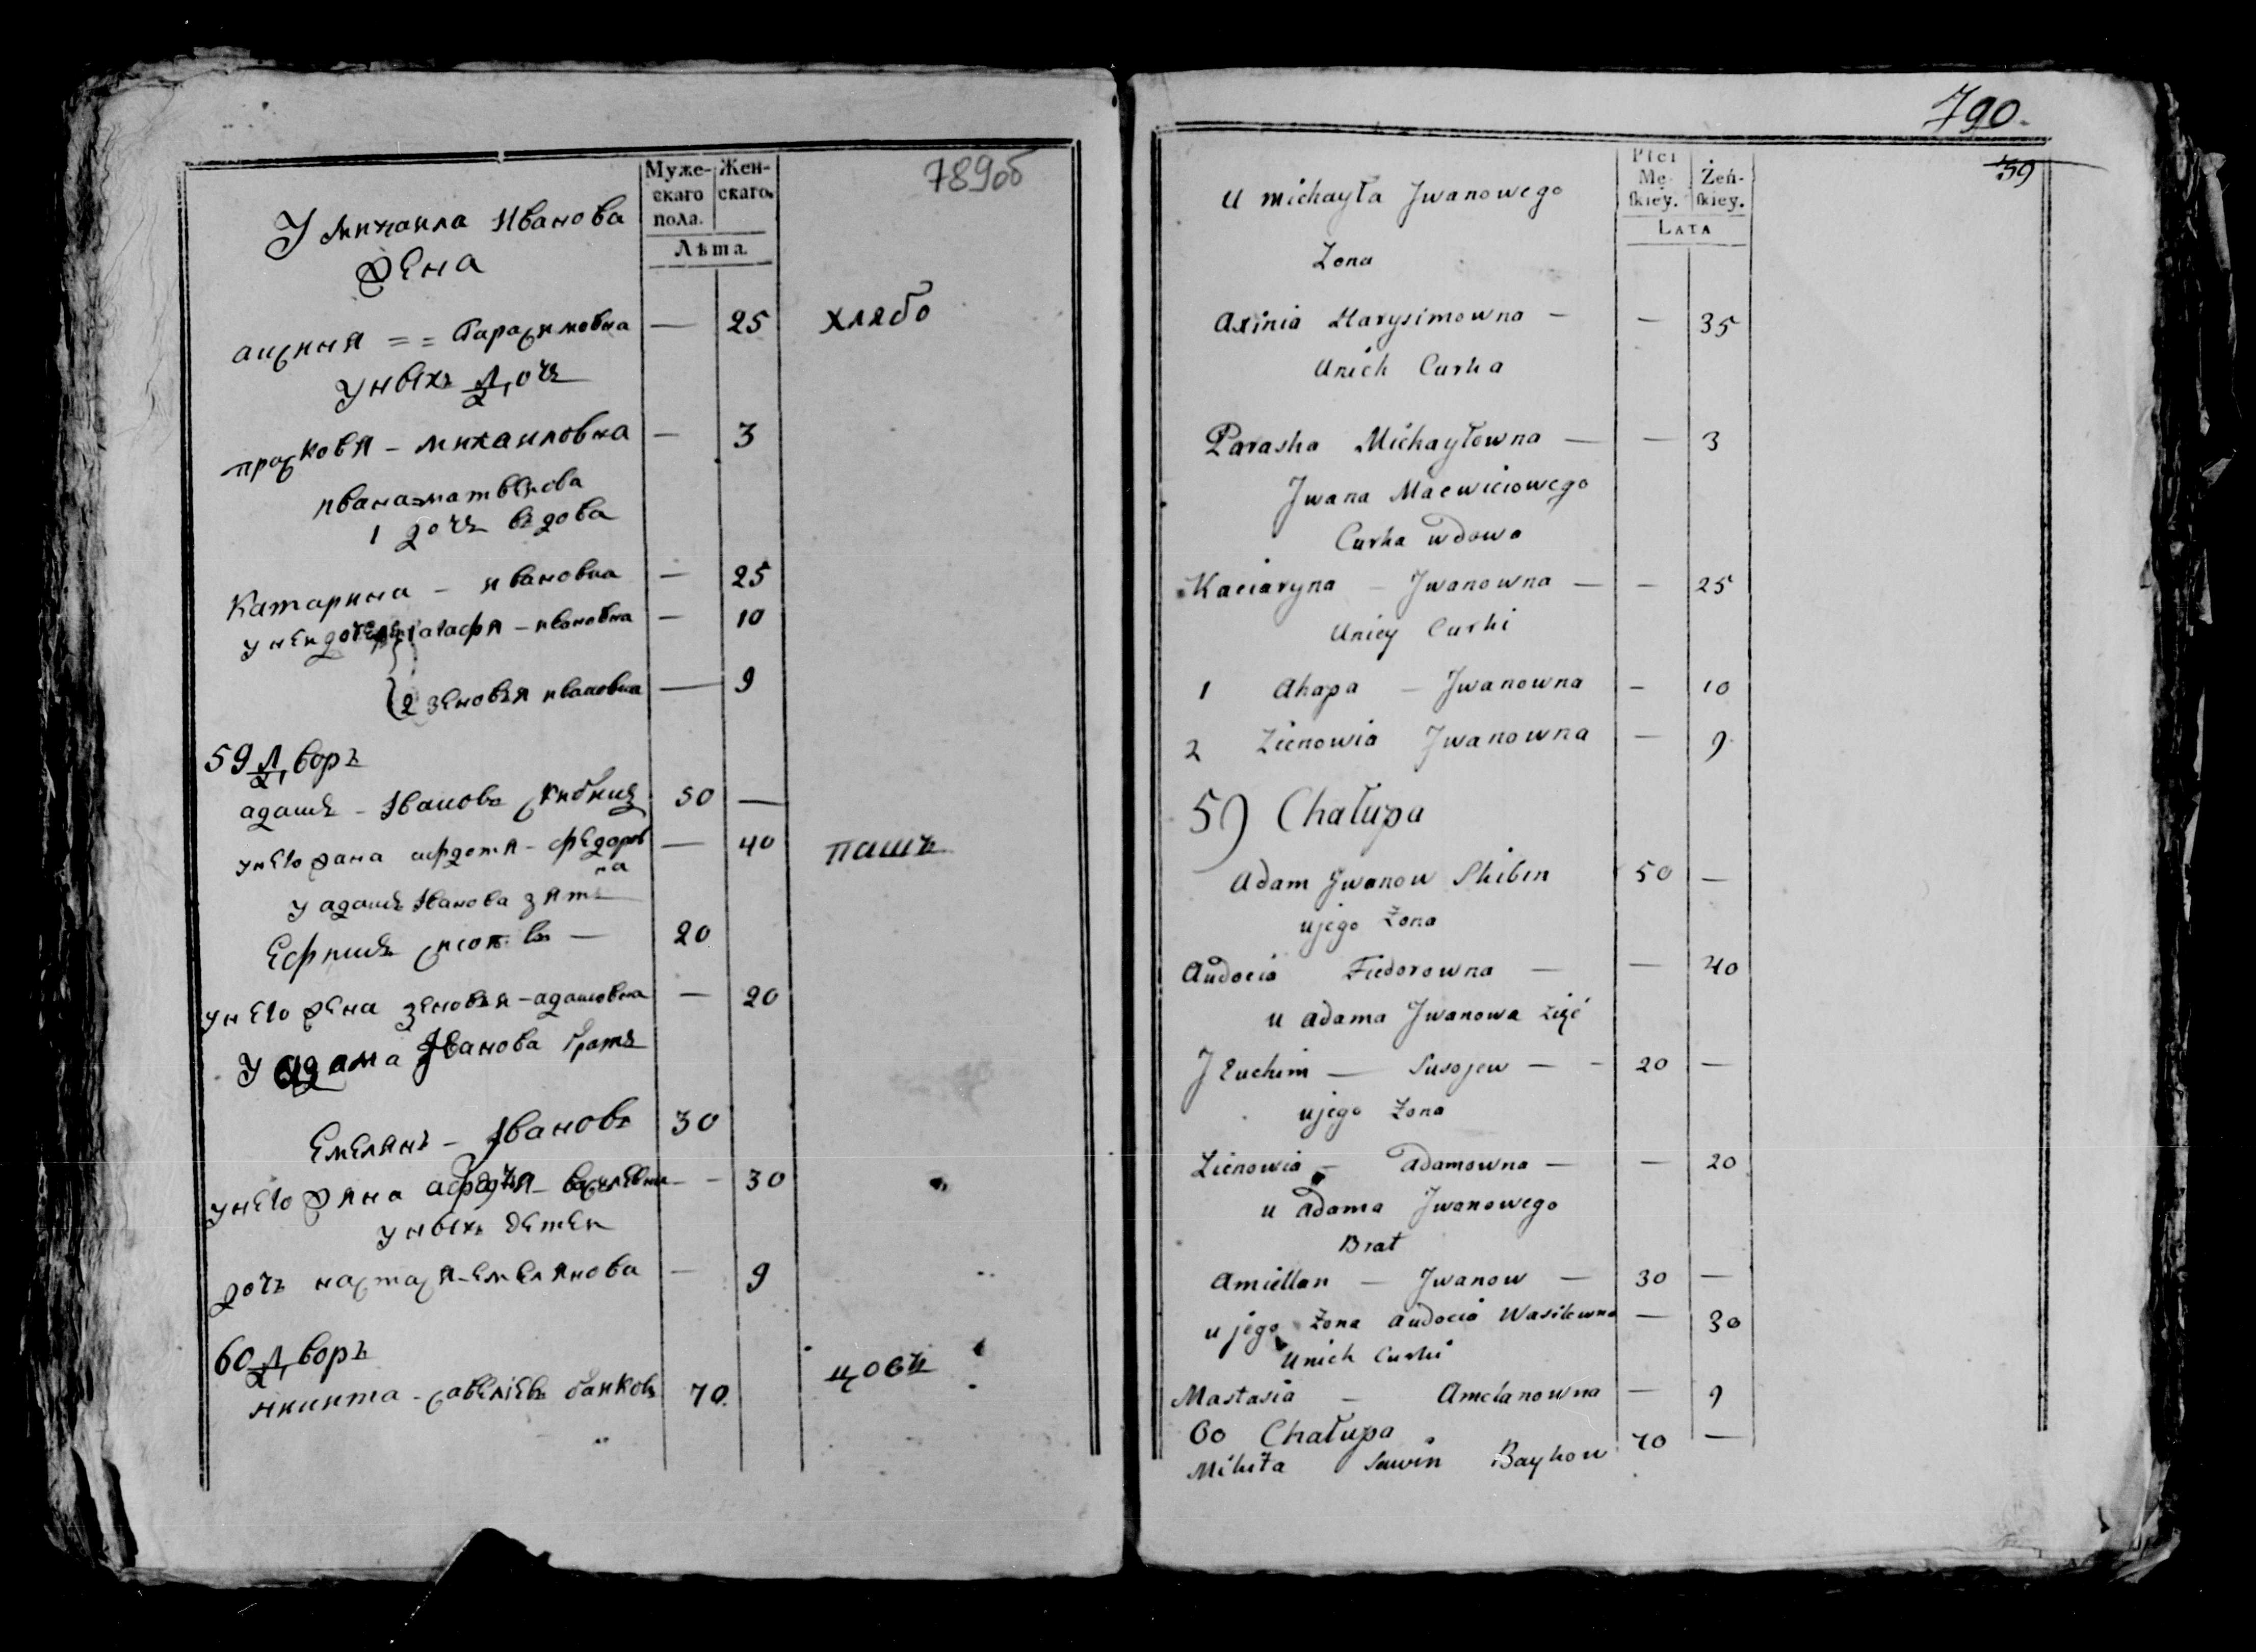 789об
Муже-
скаго
пола.
Жен-
скаго.
Лѣта.
У михаила Иванова
жена
аксиня = = Гарасимовна — 25 хлябо
унвіхъ дочь
прасковя - михаиловна — 3
ивана матвѣева
1 дочь вдова
Катарина - ивановна — 25
унеи дочери 1 агафя - ивановна — 10
2 зеновья ивановна — 9
59 Дворъ
адамъ - Іванов скибин 50 —
унего жана афдотя - федоров на — 40 пашъ
у адамъ Іванова зять
Ефимъ 20
унего жена зеновья - адамовна — 20
У адама Іванова братъ
Емелянъ - Іванов 30
унего жана афдотя - василевна - - 30
унвіхъ детеи
дочь настася - емелянова — 9
60 Дворъ
никита - савеліевъ баиков 70 цовъ
790.
59
Płci
Mę-
skiey.
Żeń-
skiey.
LATA
U michayła Jwanowego
Zona
Axinia Harysimowna — — 35
Unich Curka
Paraska Michayłowna — — 3
Jwana Maewiciowego
Curka wdowa
Kaciaryna — Jwanowna — — 25
Uniey Curki
1 Ahapa — Jwanowna — 10
2 Zienowia Jwanowna — 9
59 Chałupa
Adam Jwanow Skibin 50 —
ujego Żona
Audocia Fiedorowna — — 40
u adama Jwanowa zięć
JEuchim — Susojew — - 20 —
ujego Żona
Zienowia — Adamowna — — 20
u Adama Jwanowego
Brat
Amiellan — Jwanow — 30 —
ujego Żona Audocia Wasilewna — 30
Unich Curki
Nastasia — Amelanowna — 9
60 Chałupa
Mikita Sawin Baykow 70 —